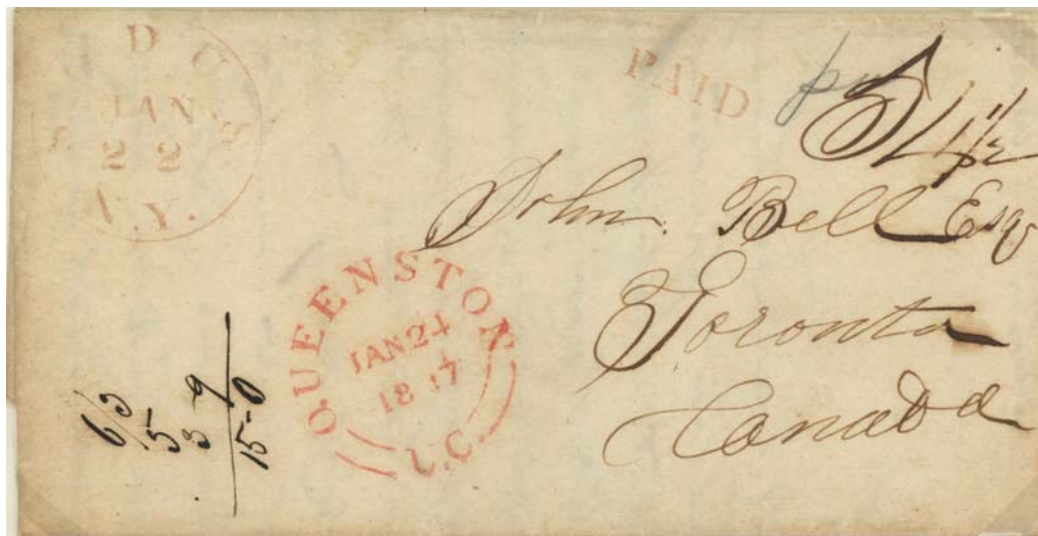 JAN
22
N.Y.
PAID
4½
John Bell Esqr
Toronto
Canada
QUEENSTON
JAN 24
1847
U.C.
6/3
5
3 9
15-0